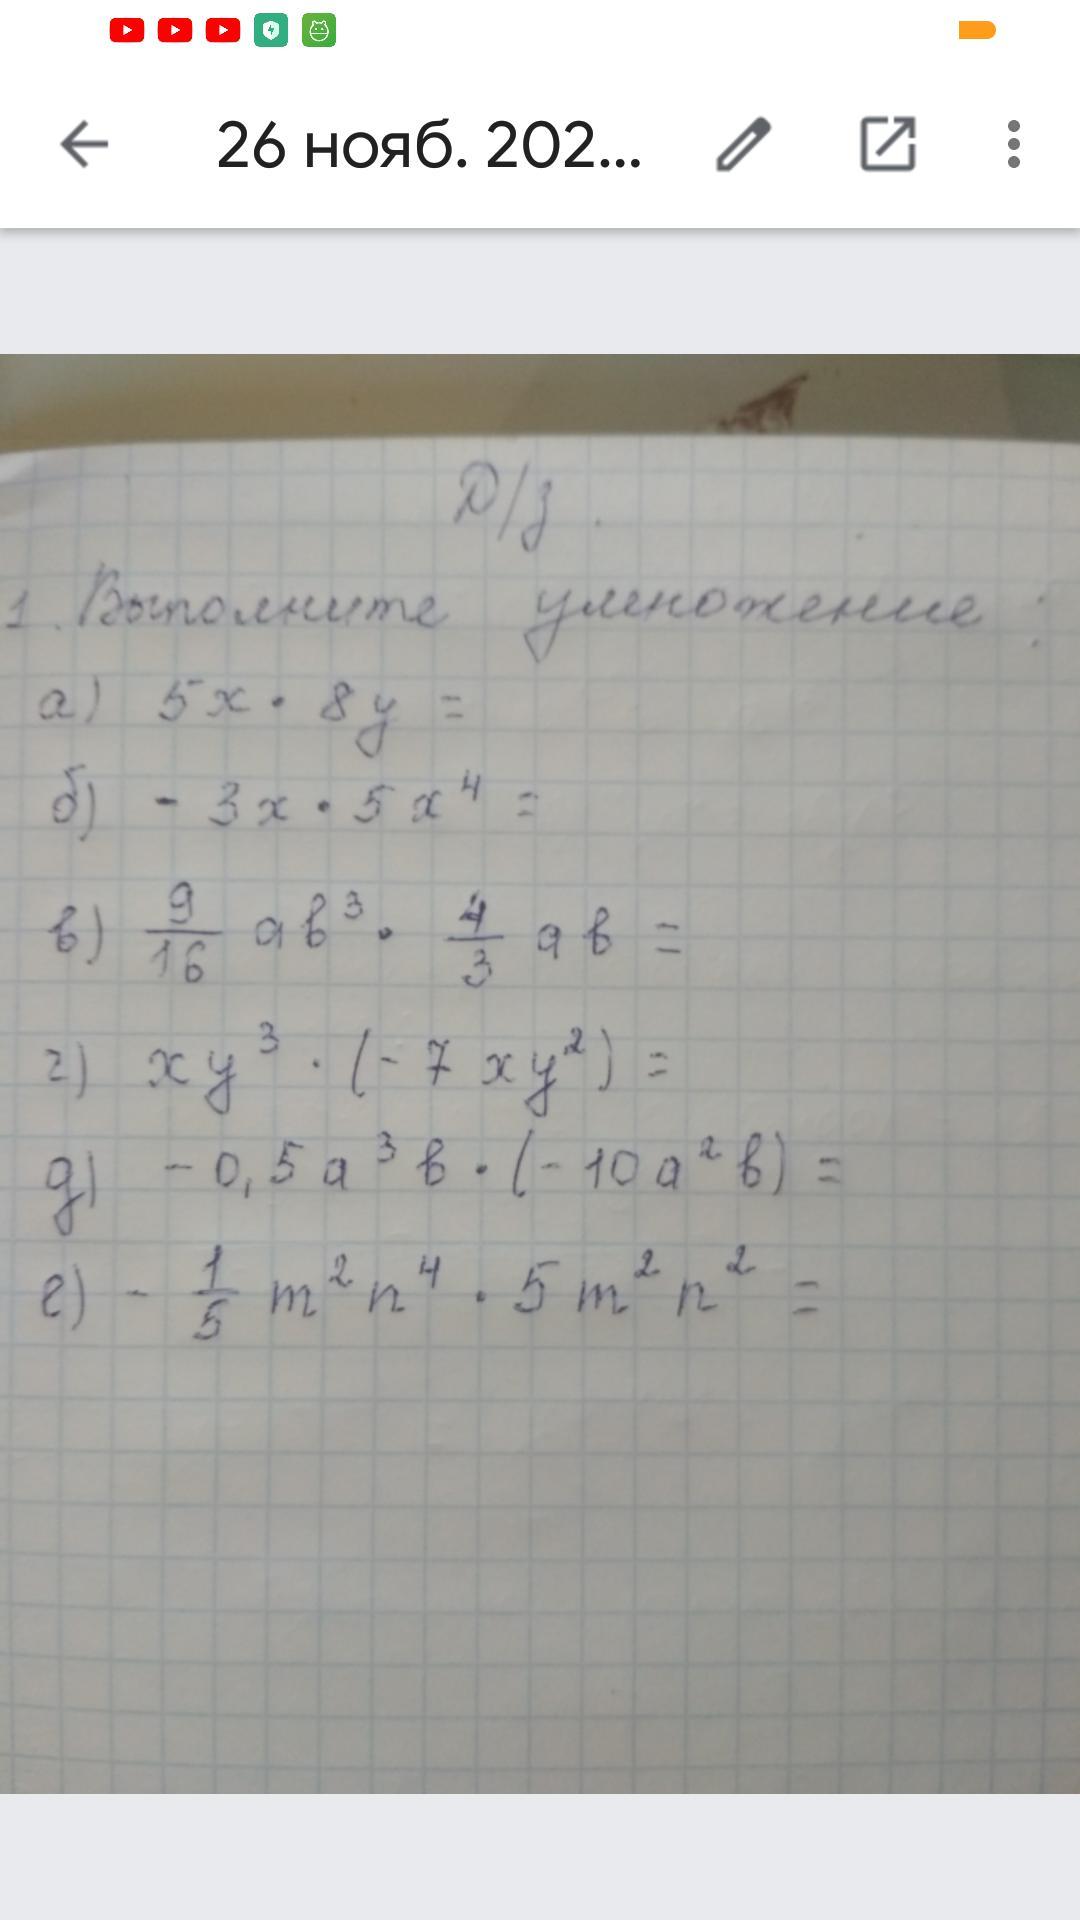 26 нояб. 202...
Д/з.
1. Выполните умножение:
а) 5x · 8y =
б) - 3x · 5x⁴ =
в) 9/16 ab³ · 4/3 ab =
г) xy³ · (- 7xy²) =
д) - 0,5a³b · (- 10a²b) =
е) - 1/5 m²n⁴ · 5m²n² =